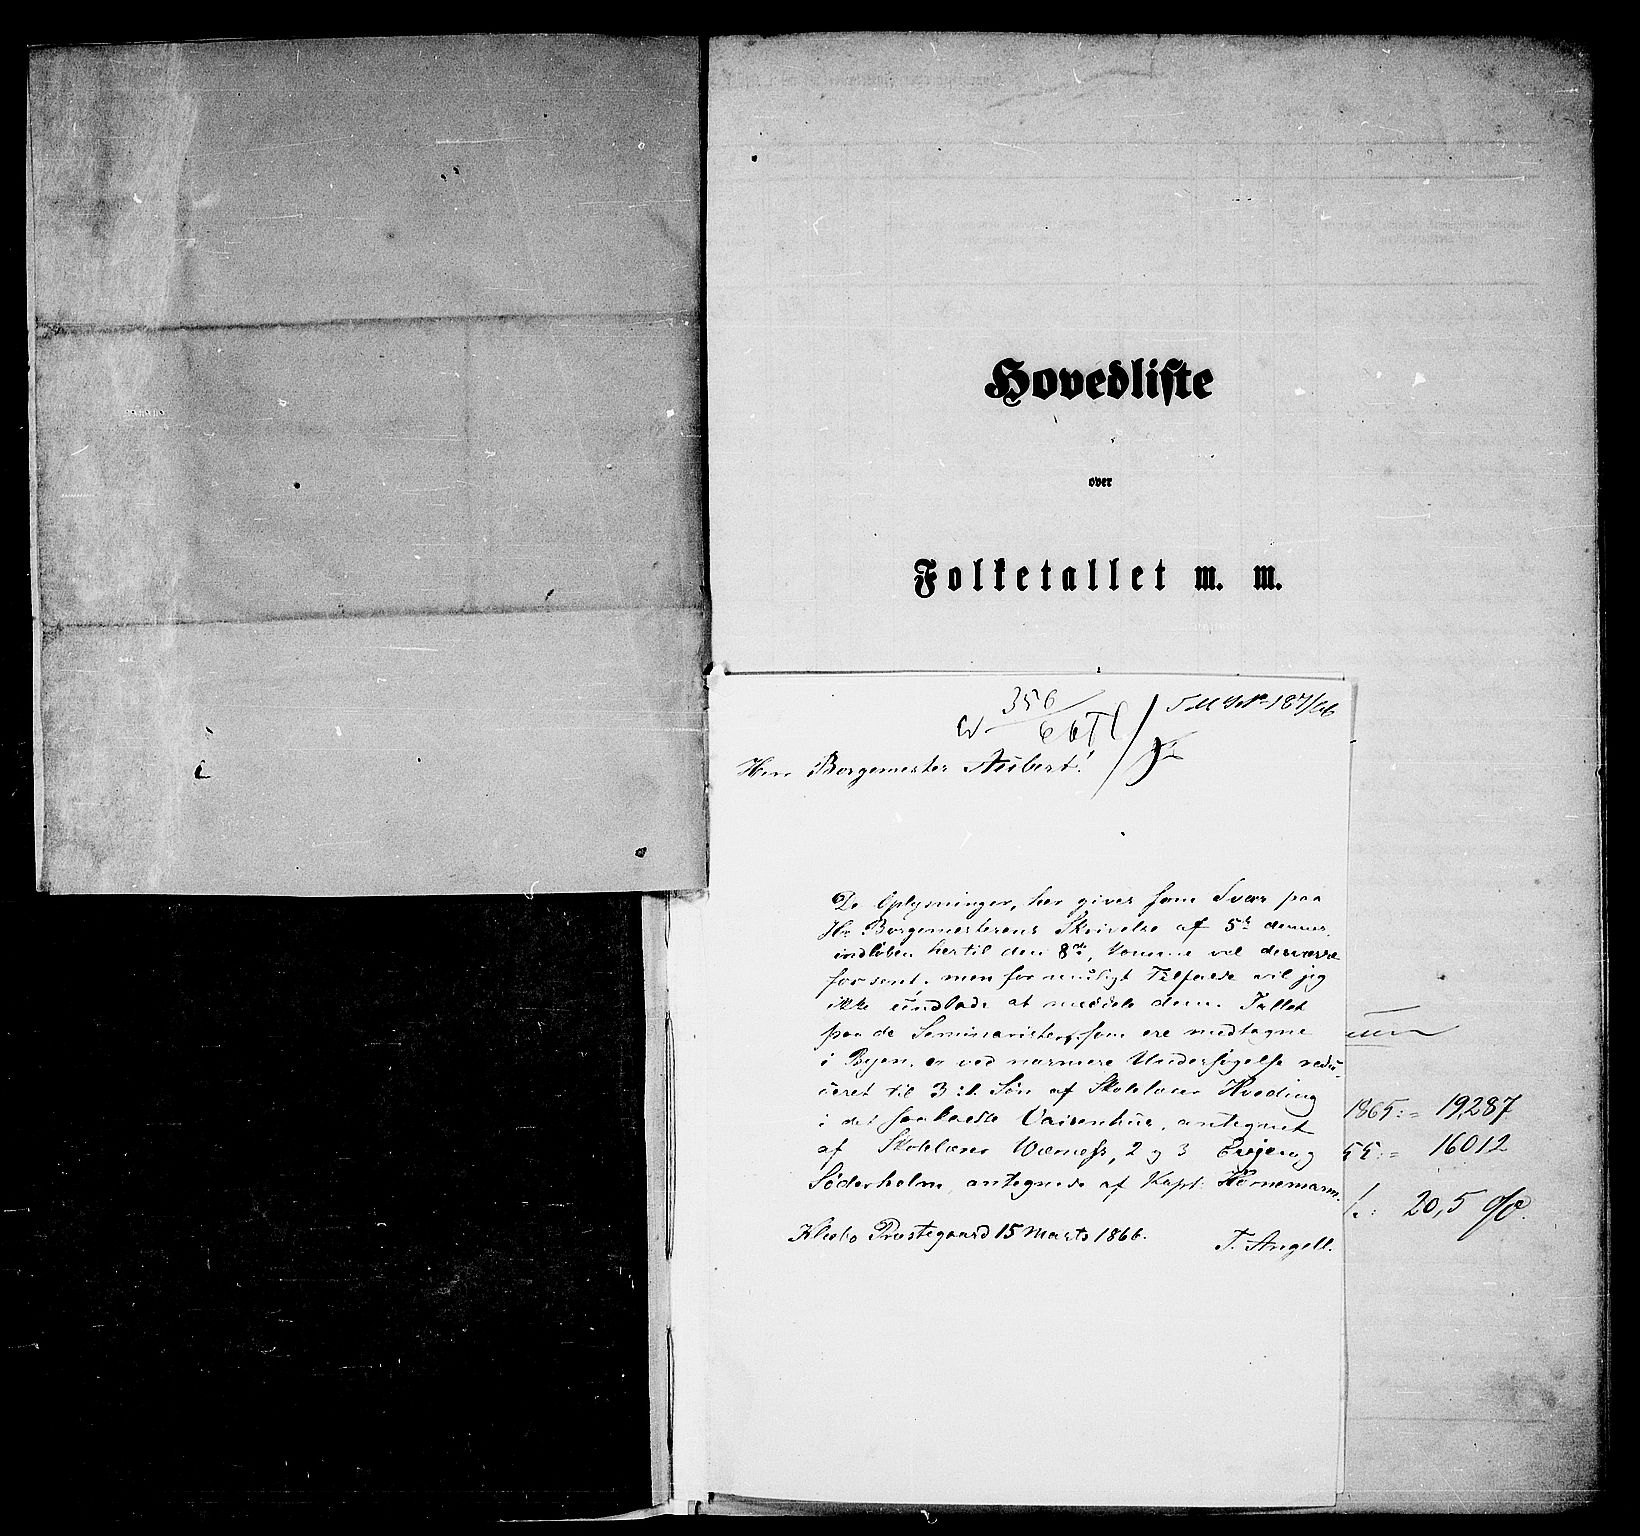 Hovedliste
over
Folketallet m. m.
356
Herr Borgemester Aubert!
De Oplysninger, her gives som Svar paa
Hr Borgemesterens Skrivelse af 5te dennes,
indløben hertil den 8de, komme vel desværre
for sent, men for muligt Tilfælde vil jeg
ikke undlade at meddele dem. Tallet
paa de Seminarister, som ere medtagne
i Byen, er ved nærmere Undersøgelse redu-
ceret til 3 :1. Søn af Skolelærer Hveding
i det saakaldte Vaisenhus, antegnet
af Skolelærer Wærness, 2 og 3 og
Söderholm, antegnede af Kapt: Hornemann.
Klæbo Præstegaard 15 Marts 1866.
T. Angell.
1865: = 19,287
55: = 16012
20,5 %.